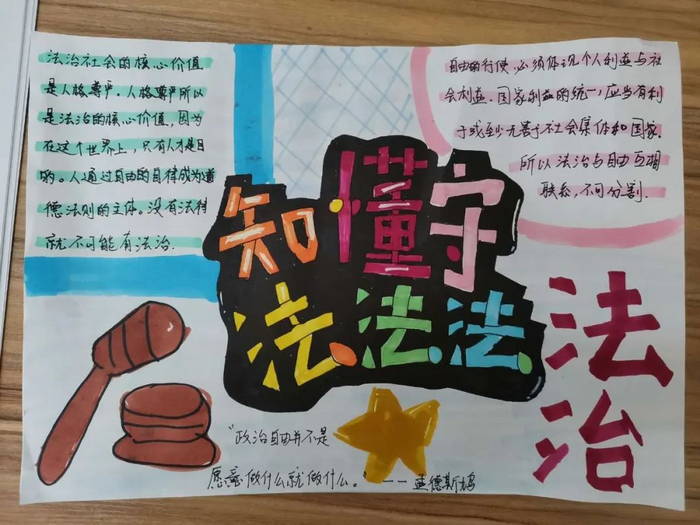 法治社会的核心价值
是人格尊严。人格尊严所以
是法治的核心价值，因为
在这个世界上，只有人才是目
的。人通过自由的自律成为道
德法则的主体。没有法律
就不可能有法治.
自由的行使，必须体现个人利益与社
会利益、国家利益的统一，应当有利
于或至少无害于社会集体和国家.
所以法治与自由互相
联系，不可分割.
知懂守
法法法
法
治
"政治自由并不是
愿意做什么就做什么。"——孟德斯鸠